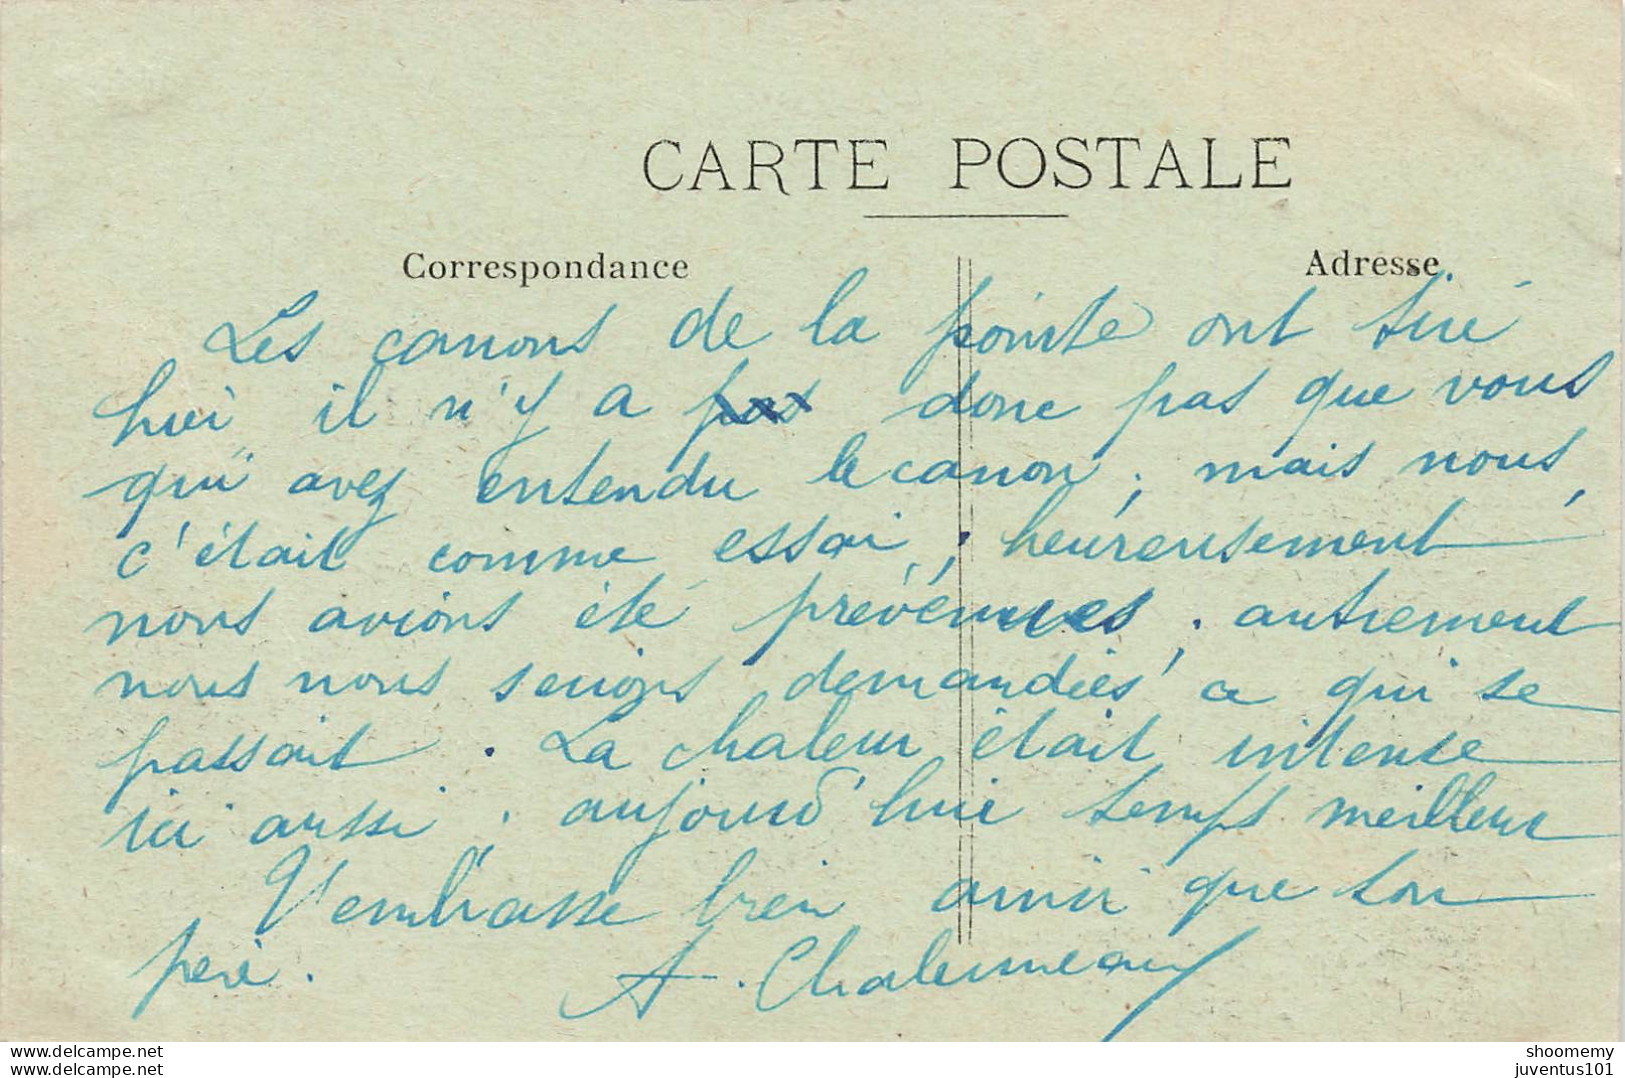 CARTE POSTALE
Correspondance
Adresse
Les canons de la pointe ont tiré
hui il n'y a pas donc pas que vous
qui avez entendu le canon, mais nous,
c'était comme essai, heureusement
nous avions été prévenues, autrement
nous nous serions demandées ce qui se
passait. La chaleur était intense
ici aussi, aujourd'hui temps meilleur
T'embrasse bien ainsi que ton
père. A. Chalumeau
shoomemy
juventus101
delcampe.net